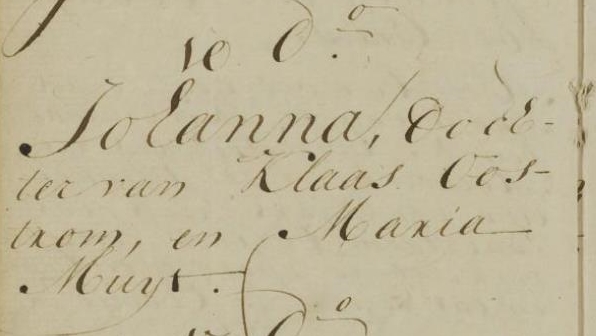 10 d.o
Johanna, doch-
ter van Klaas Oos-
trom, en Maria
Muyt.
d.o